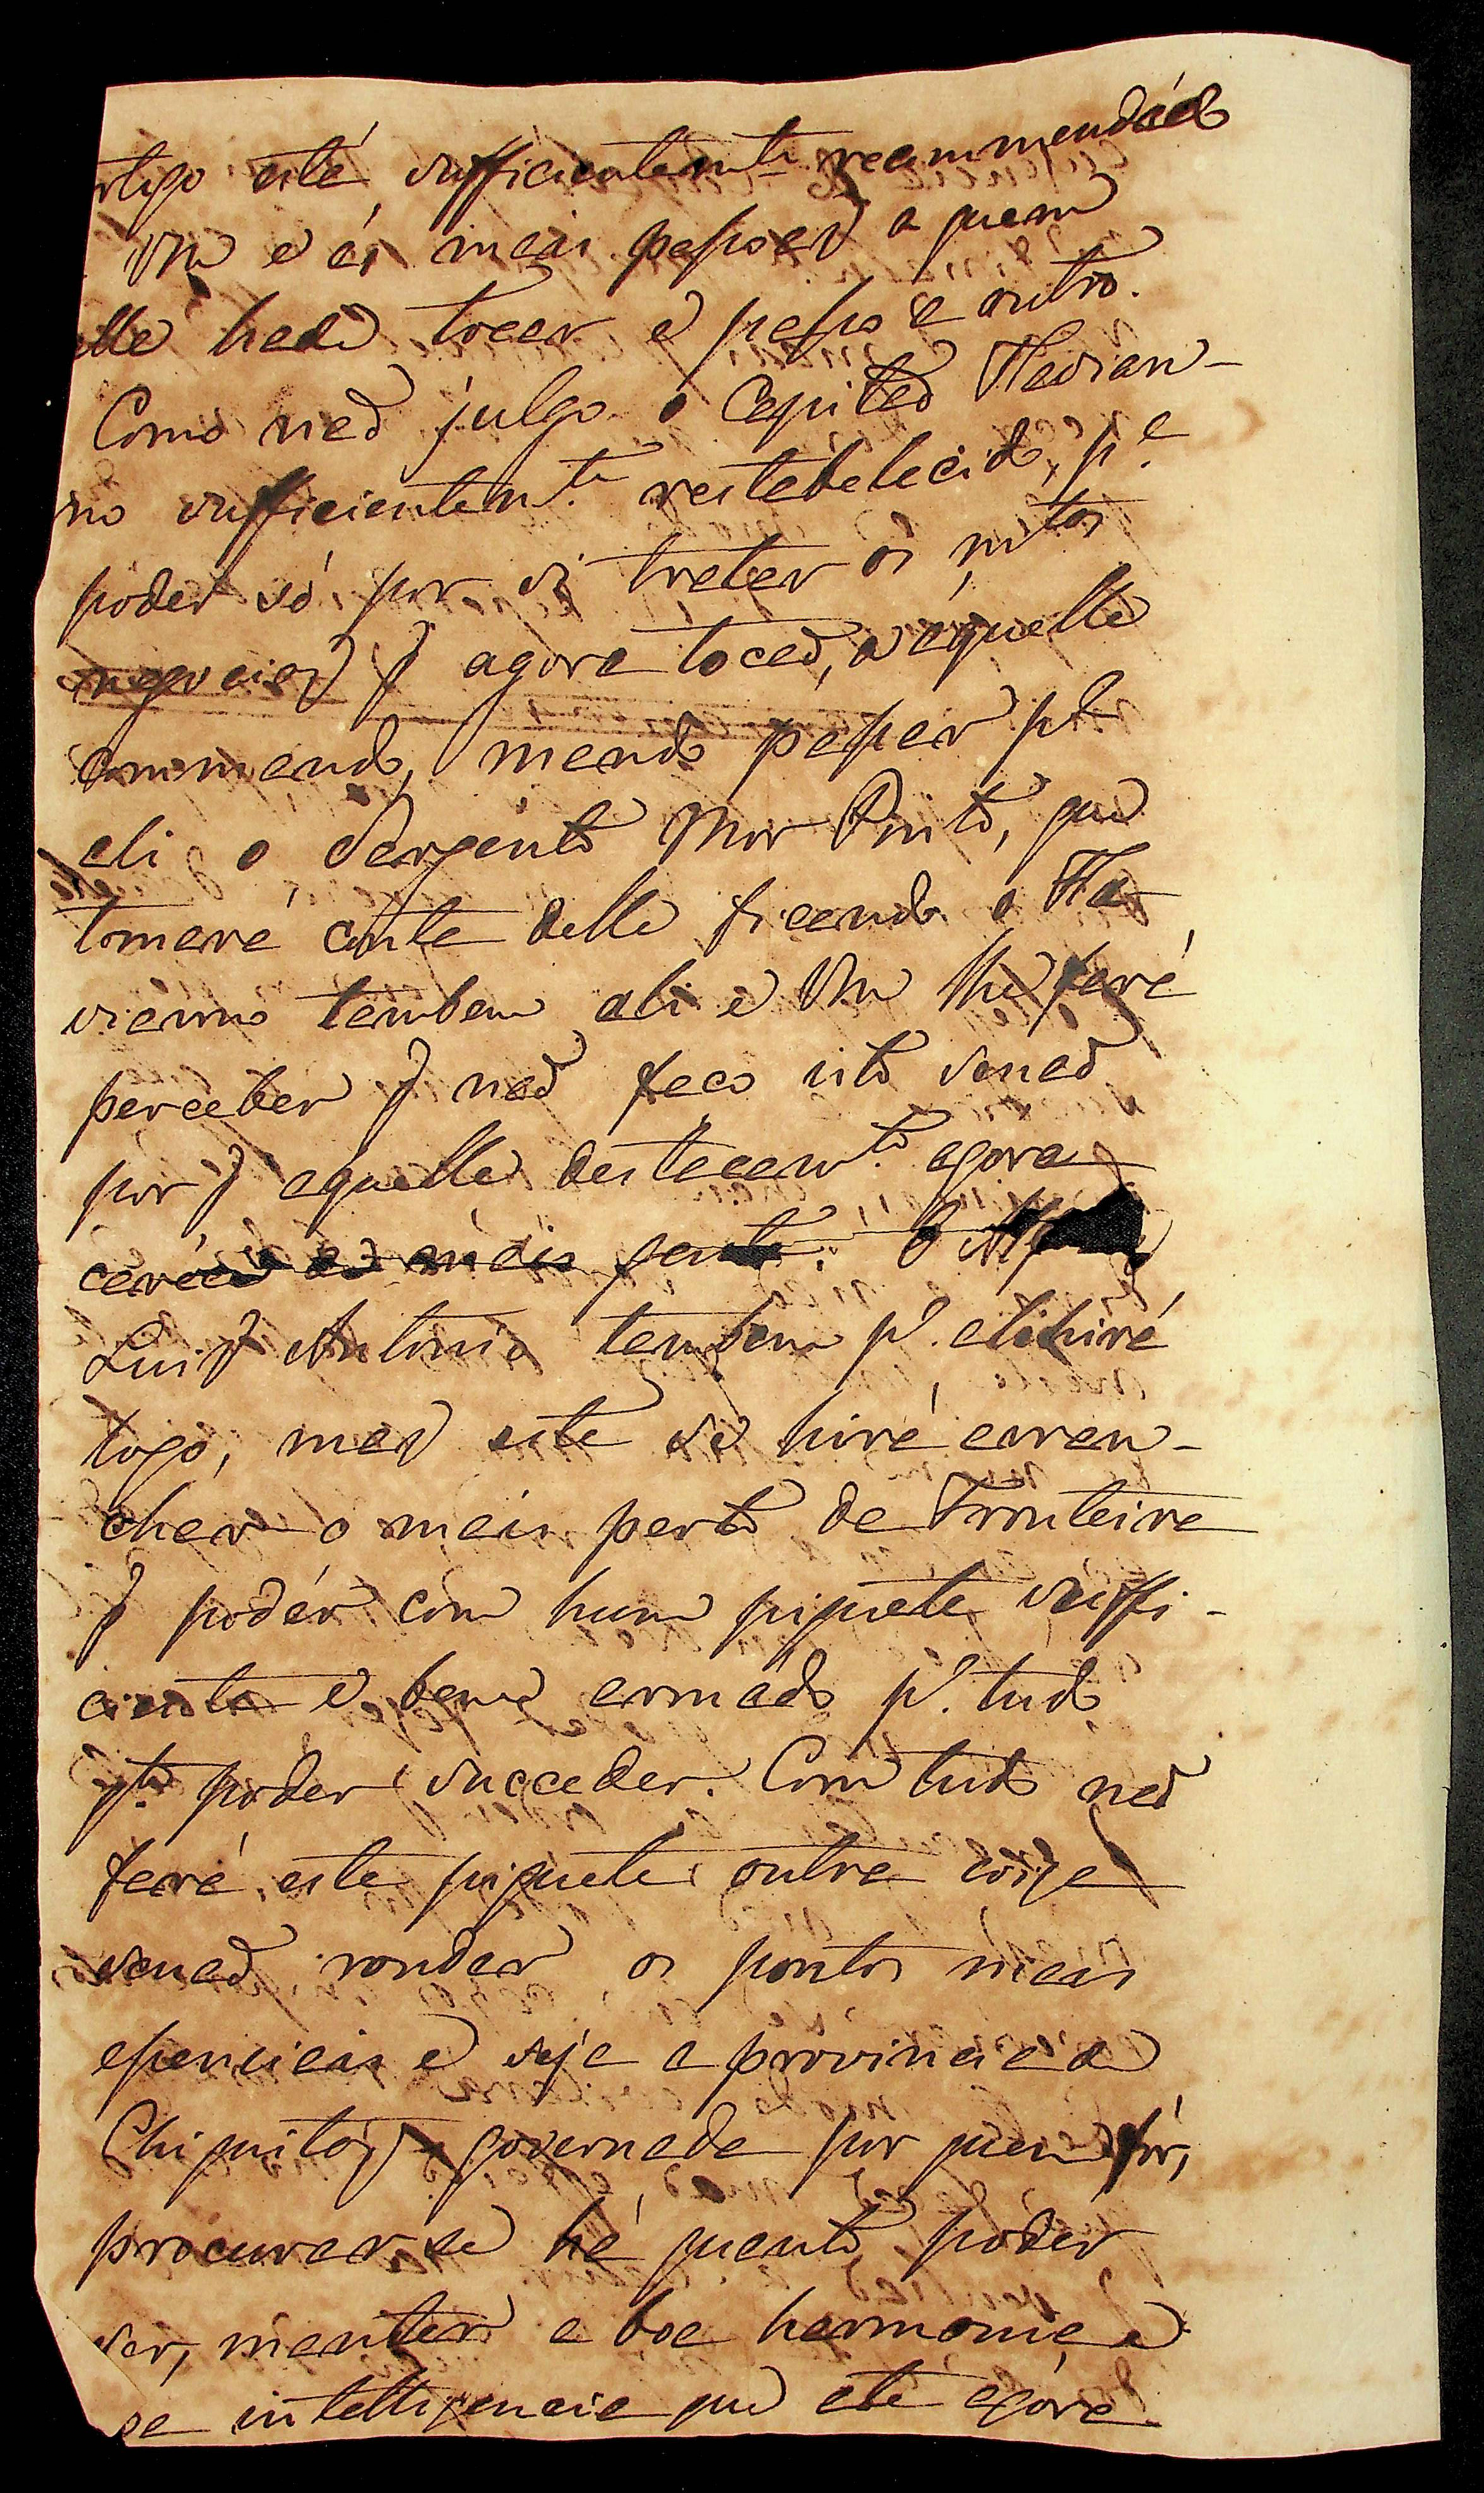 rtigo está sufficientemte recommendado
Vm e ás mais pessoas a quem
elle hade tocar e passo a outro.
Como naõ julgo o Capitaõ Flavian-
no sufficientem.te restabelecido, p.a
poder só por si tratar os mtos
negocios q agora tocaõ, a aquelle
commando, mando passar pa
ali o Sargento Mor Pinto, que
tomará conta delle ficando o Fla
vianno tambem ali e Vm lhe fará
perceber q naõ faço isto senaõ
por q aquelle destacam.to agora
carece de mais gente. O Alferes
Luiz Antonio tambem p.a ali hirá
logo, mas este se hirá arran-
char o mais perto da Fronteira
q poder com hum piquete suffi-
ciente e bem armado p.a tudo
q.to poder succeder. Com tudo naõ
fará este piquete outra coiza
senaõ rondar os pontos mais
essenciais e seja a provincia de
Chiquitos governada por quem fôr,
procurar se há quanto poder
ser, manter a boa harmonia e
oa intelligencia que até agora